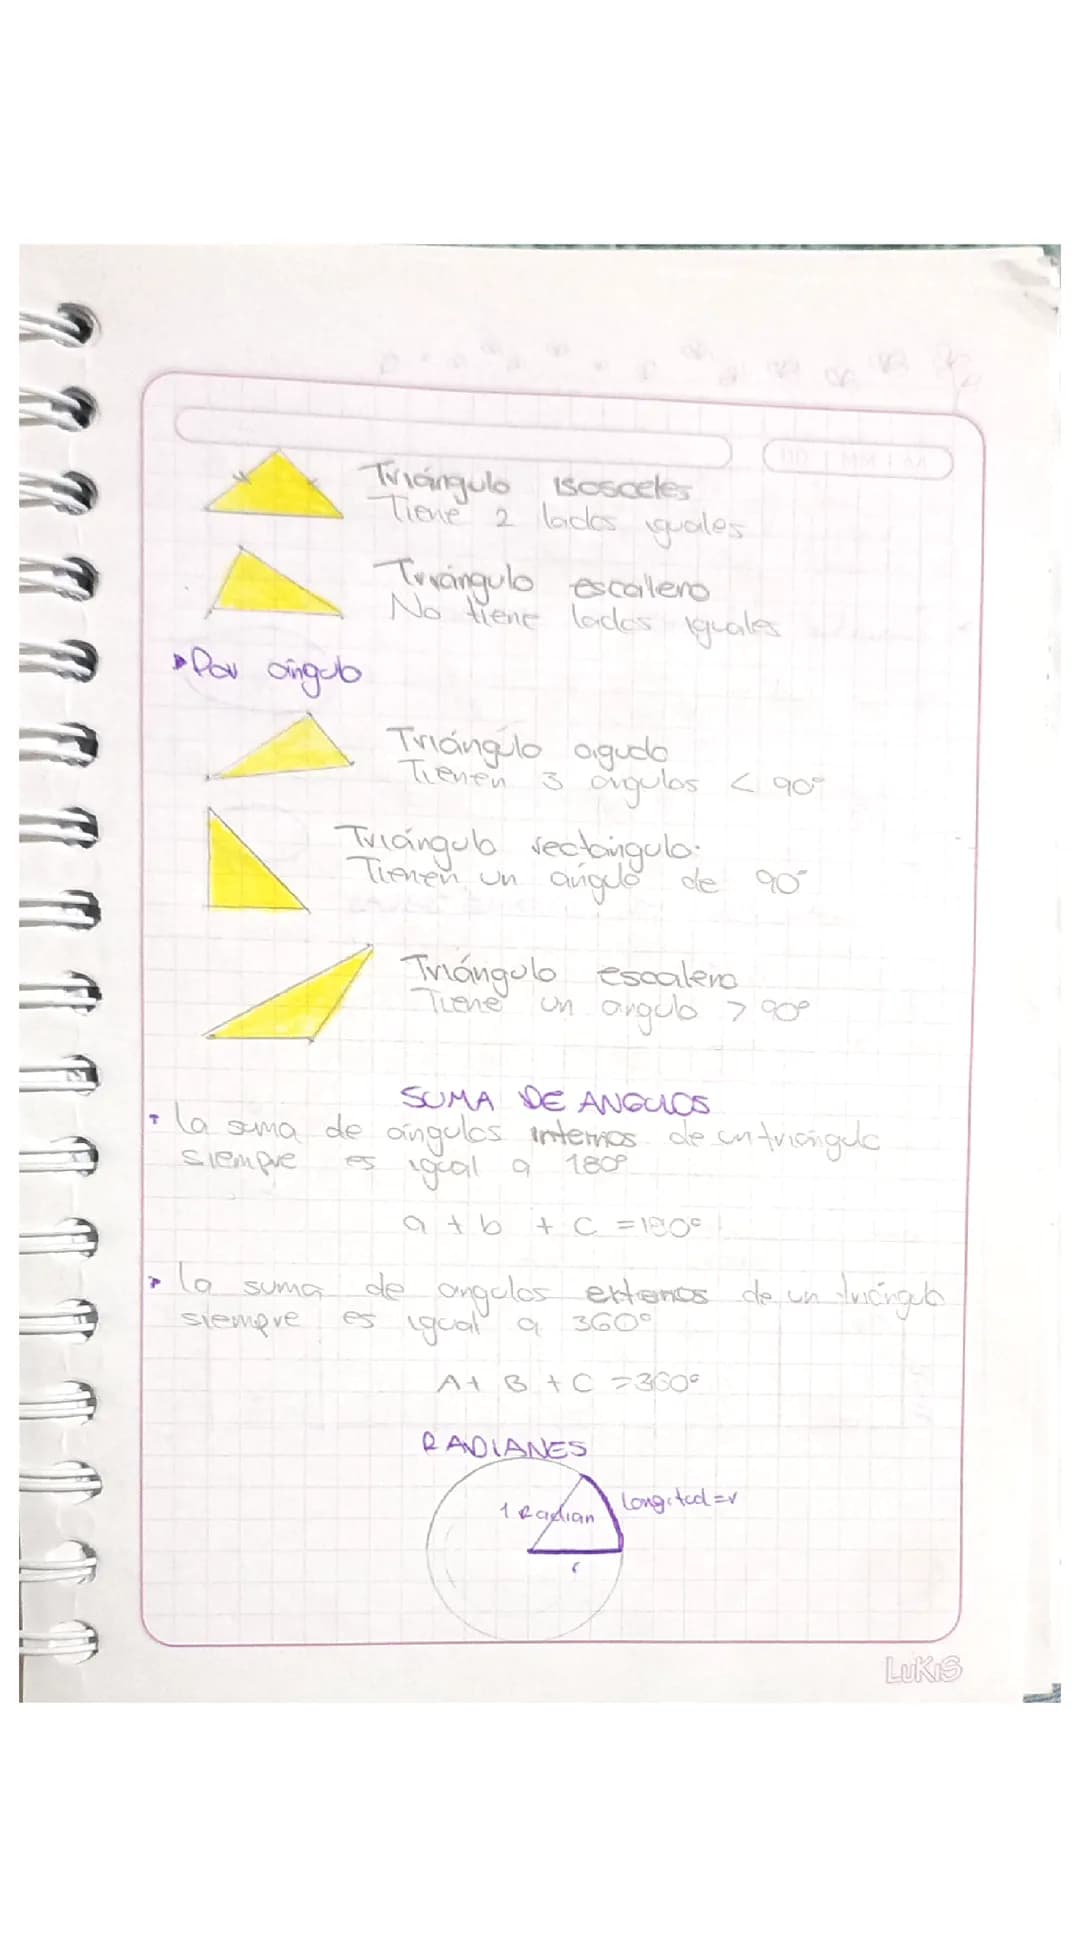 DD | MM | AA
Triángulo isosceles
Tiene 2 lados iguales
Triángulo escaleno
No tiene lados iguales
Por ángulo
Triángulo agudo
Tienen 3 angulos < 90°
Triángulo rectángulo.
Tienen un ángulo de 90°
Triángulo escaleno
Tiene un angulo > 90°
SUMA DE ANGULOS
la suma de ángulos internos de un triángulo
siempre es igual a 180°
a + b + c = 180°
la suma de angulos externos de un triángulo
siempre es igual a 360°
A + B + C = 360°
RADIANES
1 Radian
longitud = r
r
LUKIS